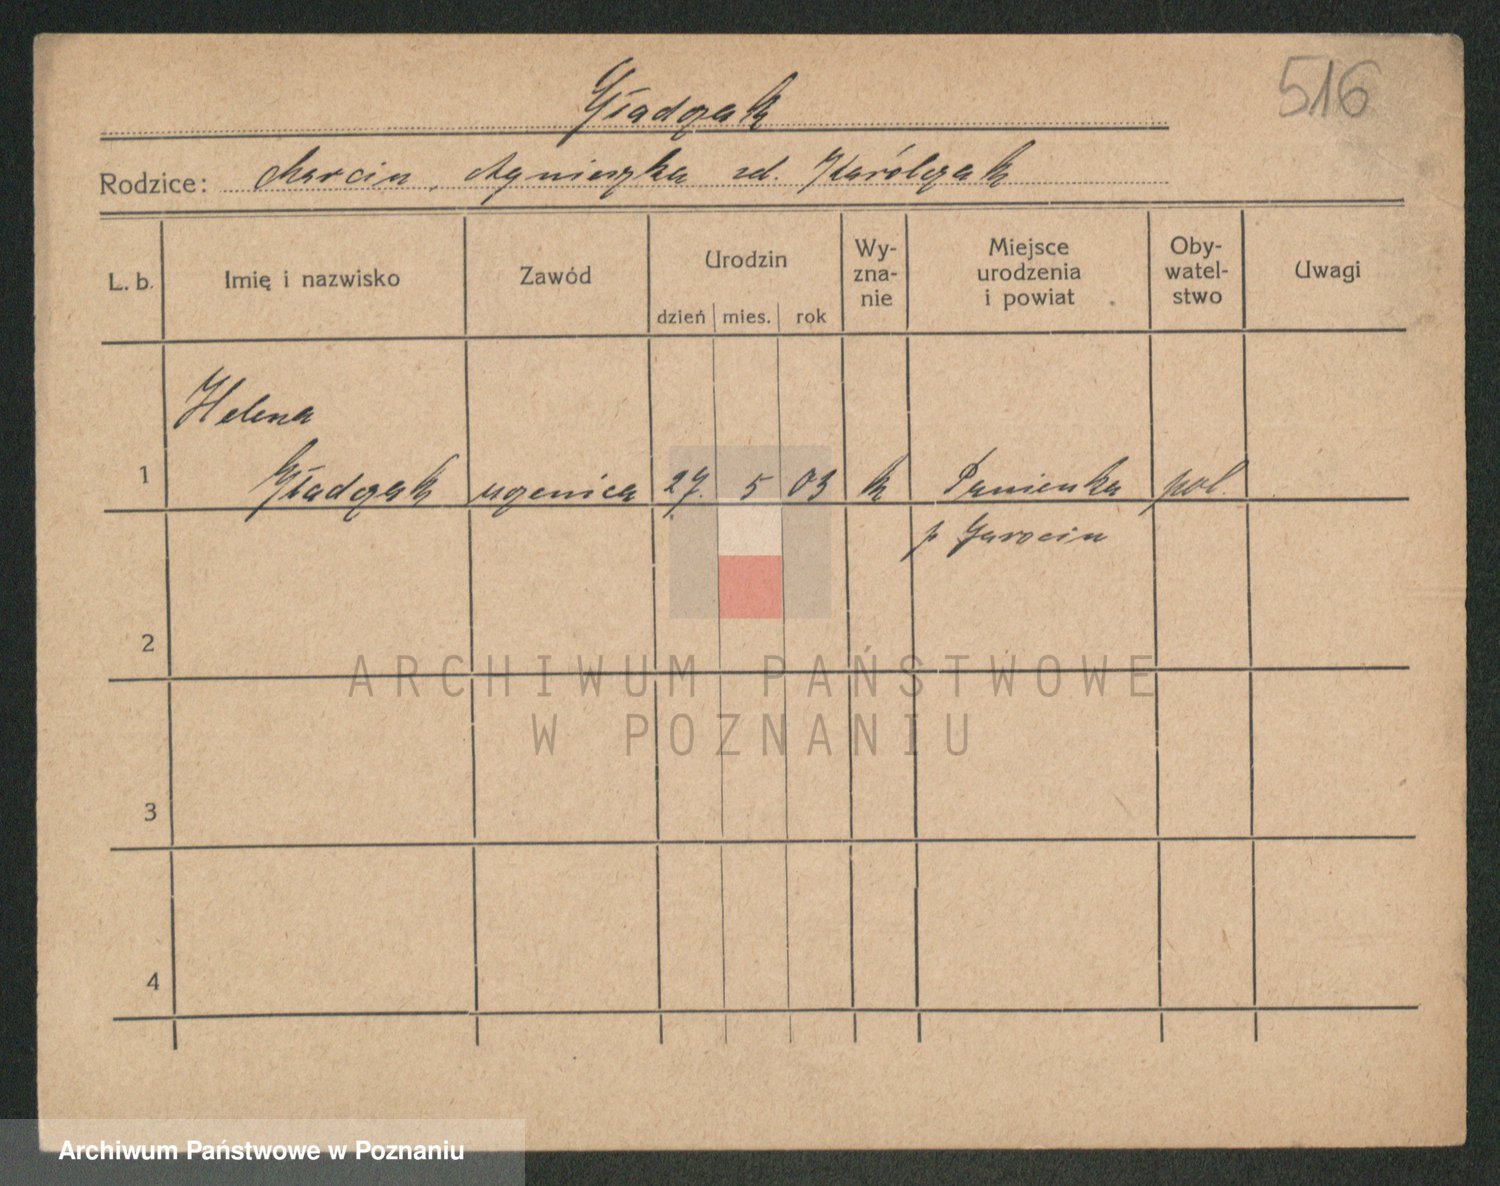 516
Gładczak
Rodzice: Marcin, Agnieszka zd. Karólczak
L. b. Imię i nazwisko Zawód Urodzin dzień mies. rok Wy-zna-nie Miejsce urodzenia i powiat Oby-watel-stwo Uwagi
Helena
1 Gładczak uczenica 27. 5 03 k Panienka pol.
p Jarocin
2
ARCHIWUM PAŃSTWOWE
W POZNANIU
3
4
Archiwum Państwowe w Poznaniu